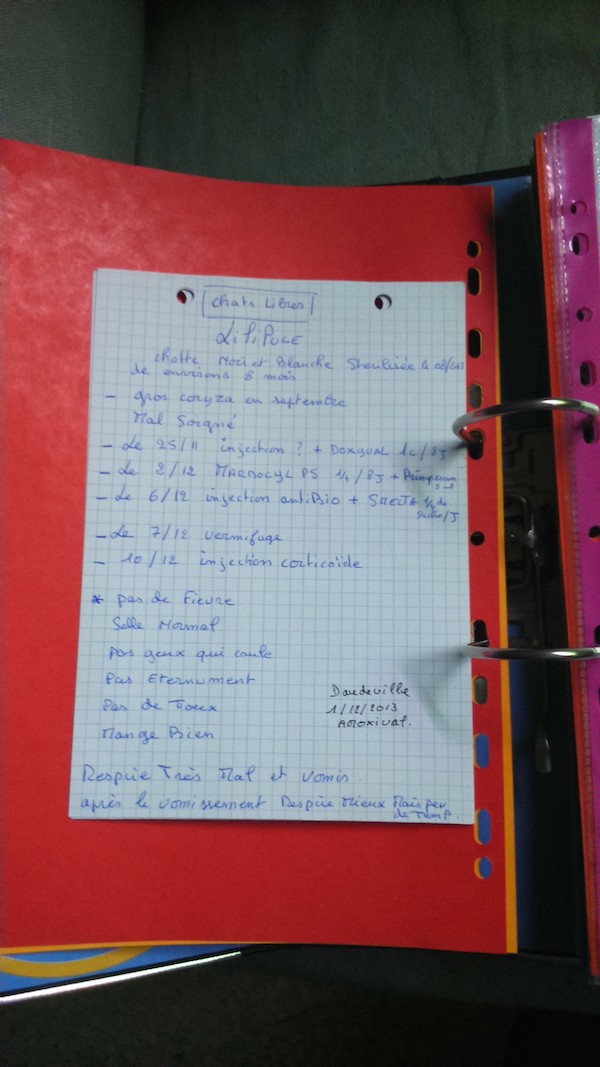 Chats Libres
LiLiPUCE
chatte Noir et Blanche Sterilisée le
de environs 8 mois
- gros coryza en septembre
Mal Soigné
- Le 25/11 injection ? + DOXYVAL 1c/8J
- Le 2/12 MARBOCYL PS 1/4 / 8J + Primperan
- Le 6/12 injection antiBio + SMECTA 1/2 de
Sachet/J
- Le 7/12 vermifuge
- 10/12 injection corticoïde
* pas de Fievre
Selle Normal
pas yeux qui coule
Pas Eternument
Pas de Toux
Mange Bien
Daudeville
1/12/2013
Amoxival.
Respire Très Mal et vomis
après le vomissement Respire Mieux Mais peu
de Temp.